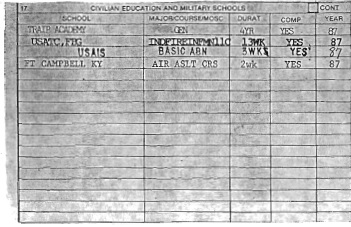 17. CIVILIAN EDUCATION AND MILITARY SCHOOLS CONT
SCHOOL MAJOR/COURSE/MOSC DURAT. COMP YEAR
TRAIP ACADEMY GEN 4YR YES 87
USATC, INDFIREINFMN11C 13WK YES 87
USAIS BASIC ABN 3WKS YES 87
FT CAMPBELL KY AIR ASLT CRS 2wk YES 87